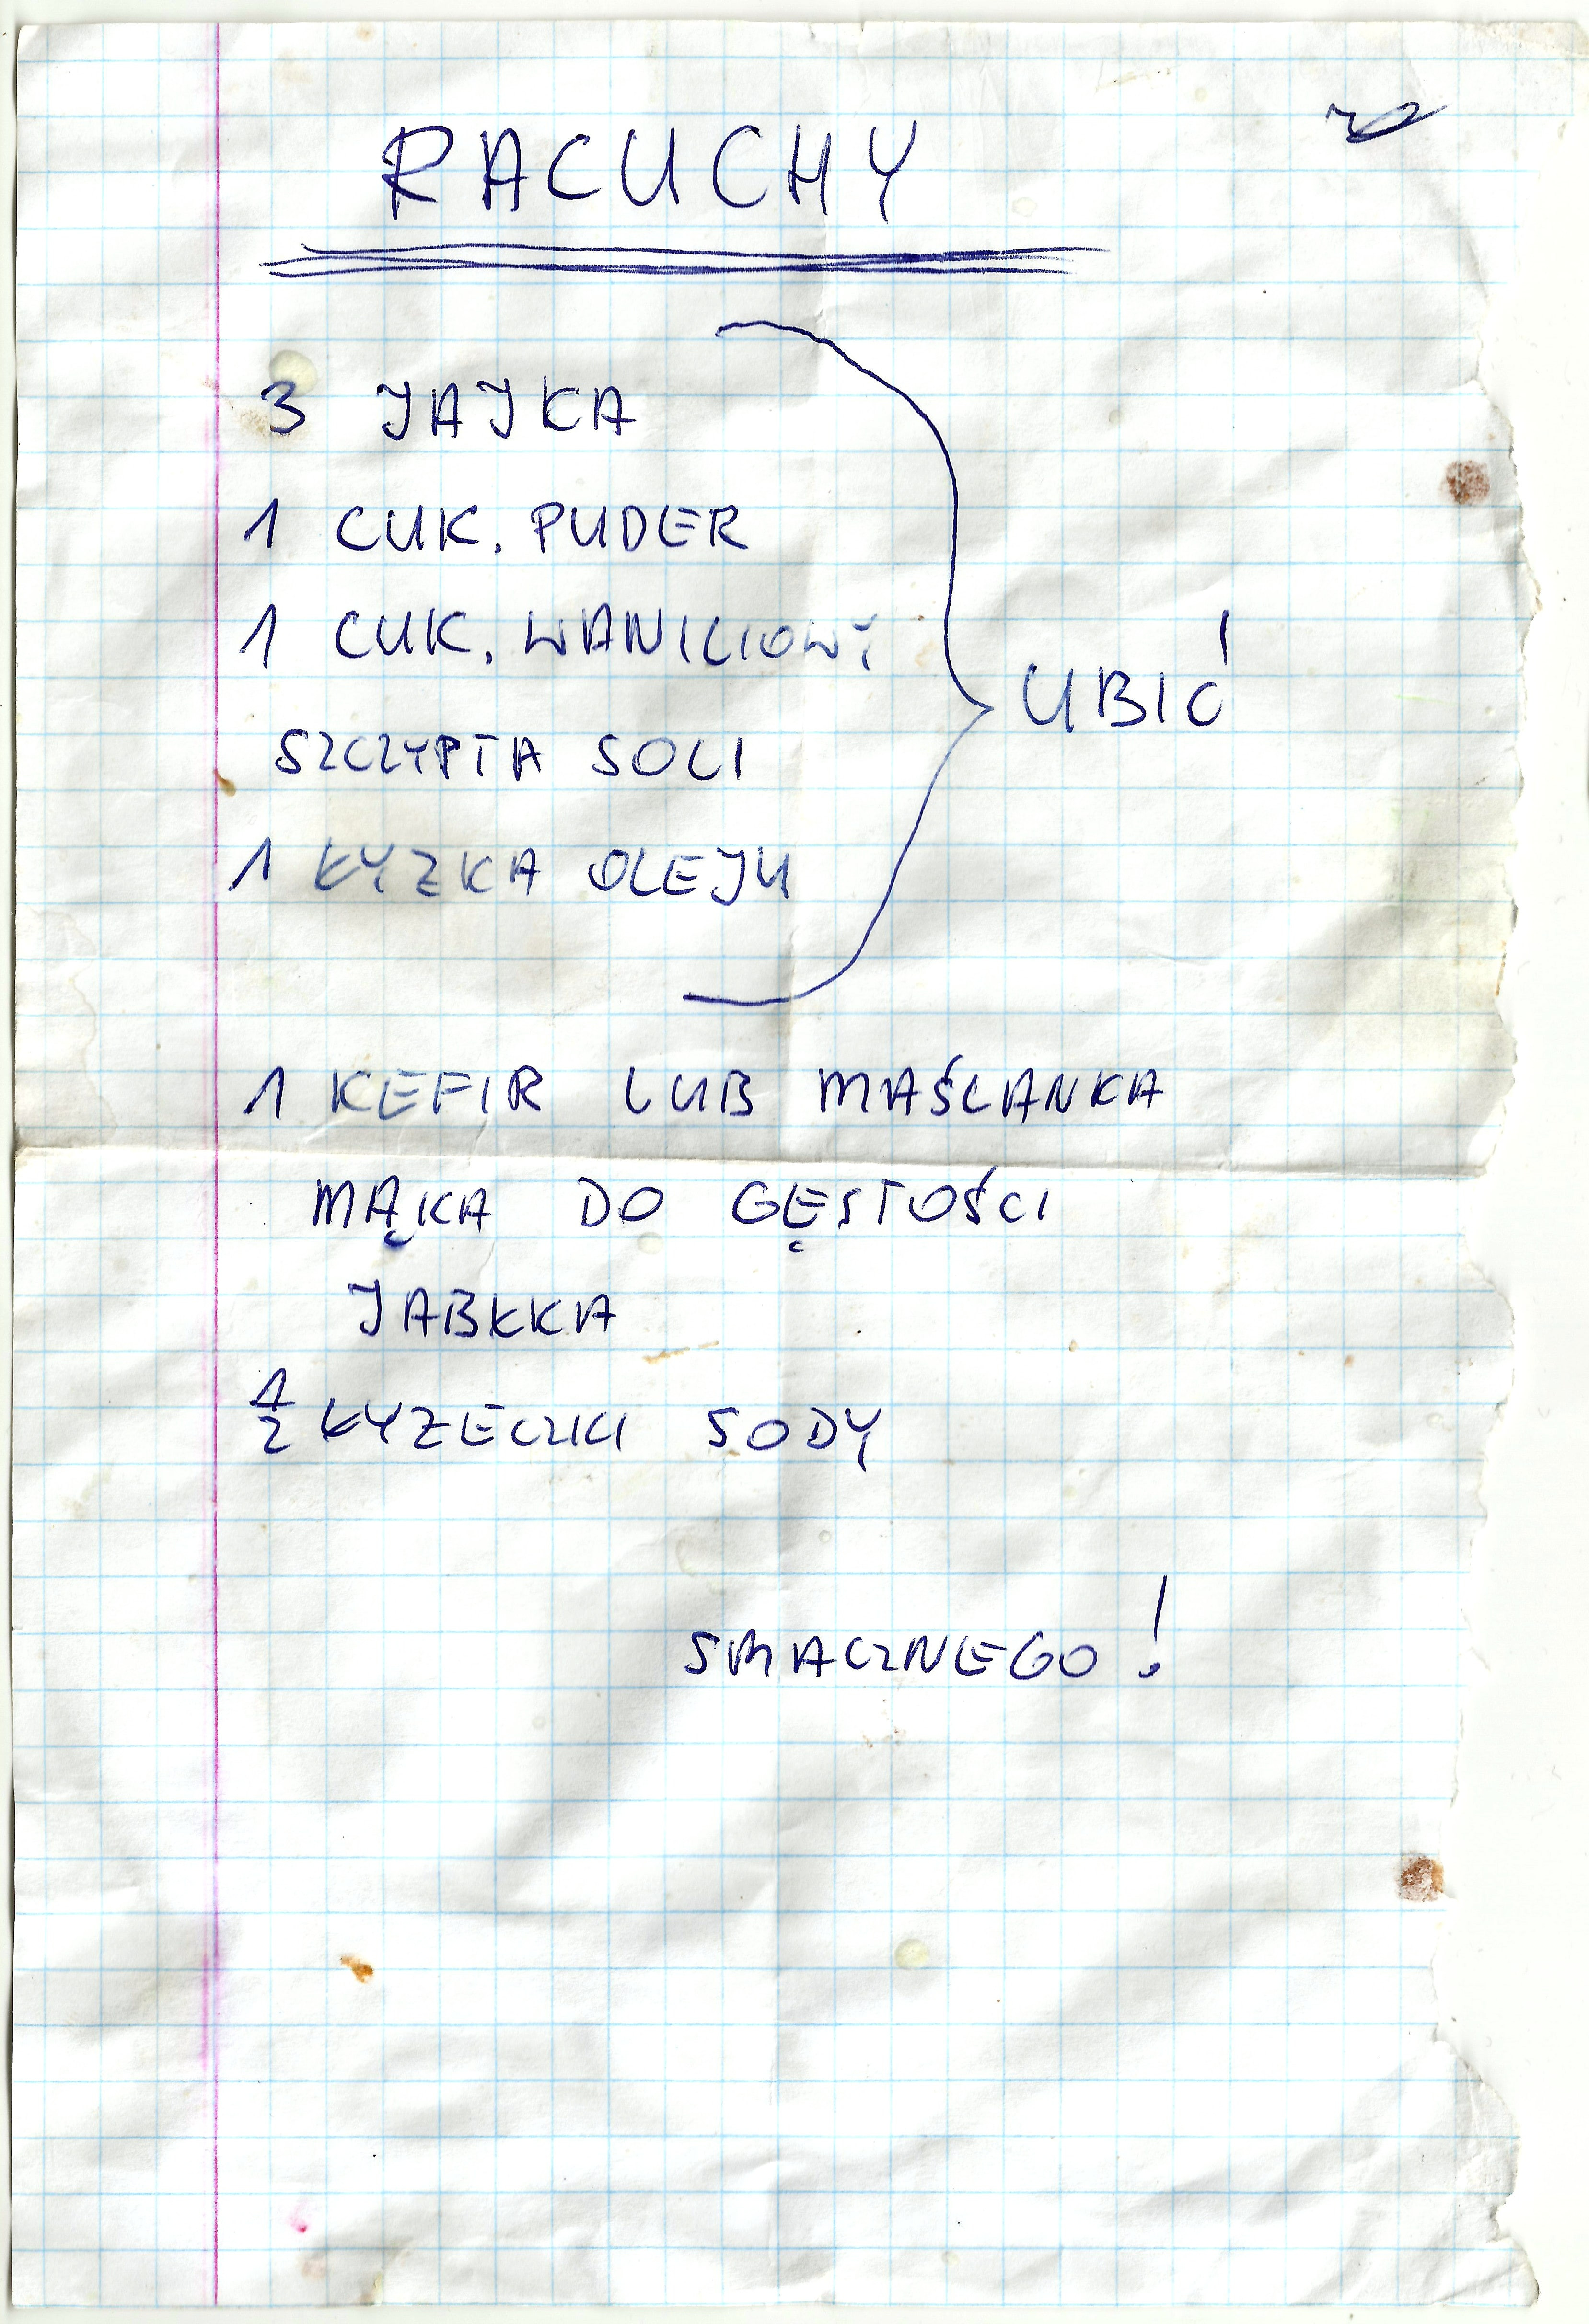 RACUCHY
3 JAJKA
1 CUK. PUDER
1 CUK. WANILIOWY
SZCZYPTA SOLI
1 ŁYZKA OLEJU
UBIĆ
1 KEFIR LUB MAŚLANKA
MĄKA DO GĘSTOŚCI
JABŁKA
1/2 ŁYZECZKI SODY
SMACZNEGO!